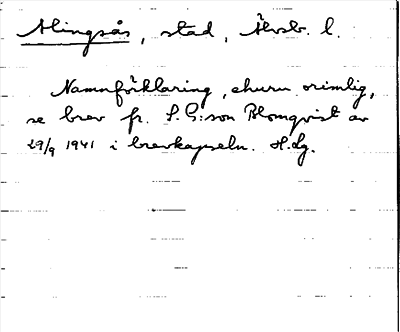 Alingsås, stad, Älvsb. l.
Namnförklaring, ehuru orimlig,
se brev fr. S. G:son Blomqvist av
29/9 1941 i brevkapseln. H. Lg.